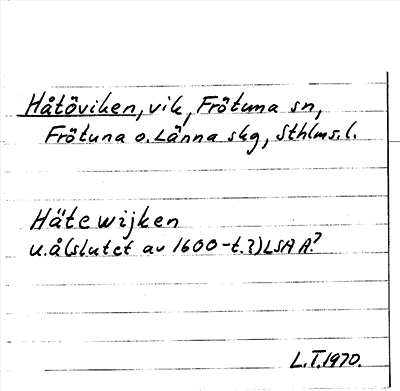 Håtöviken, vik, Frötuna sn,
Frötuna o. Länna skg, Sthlms. l.
Hätewijken
U.å (slutet av 1600-t.?) LSA A.7
L.T. 1970.